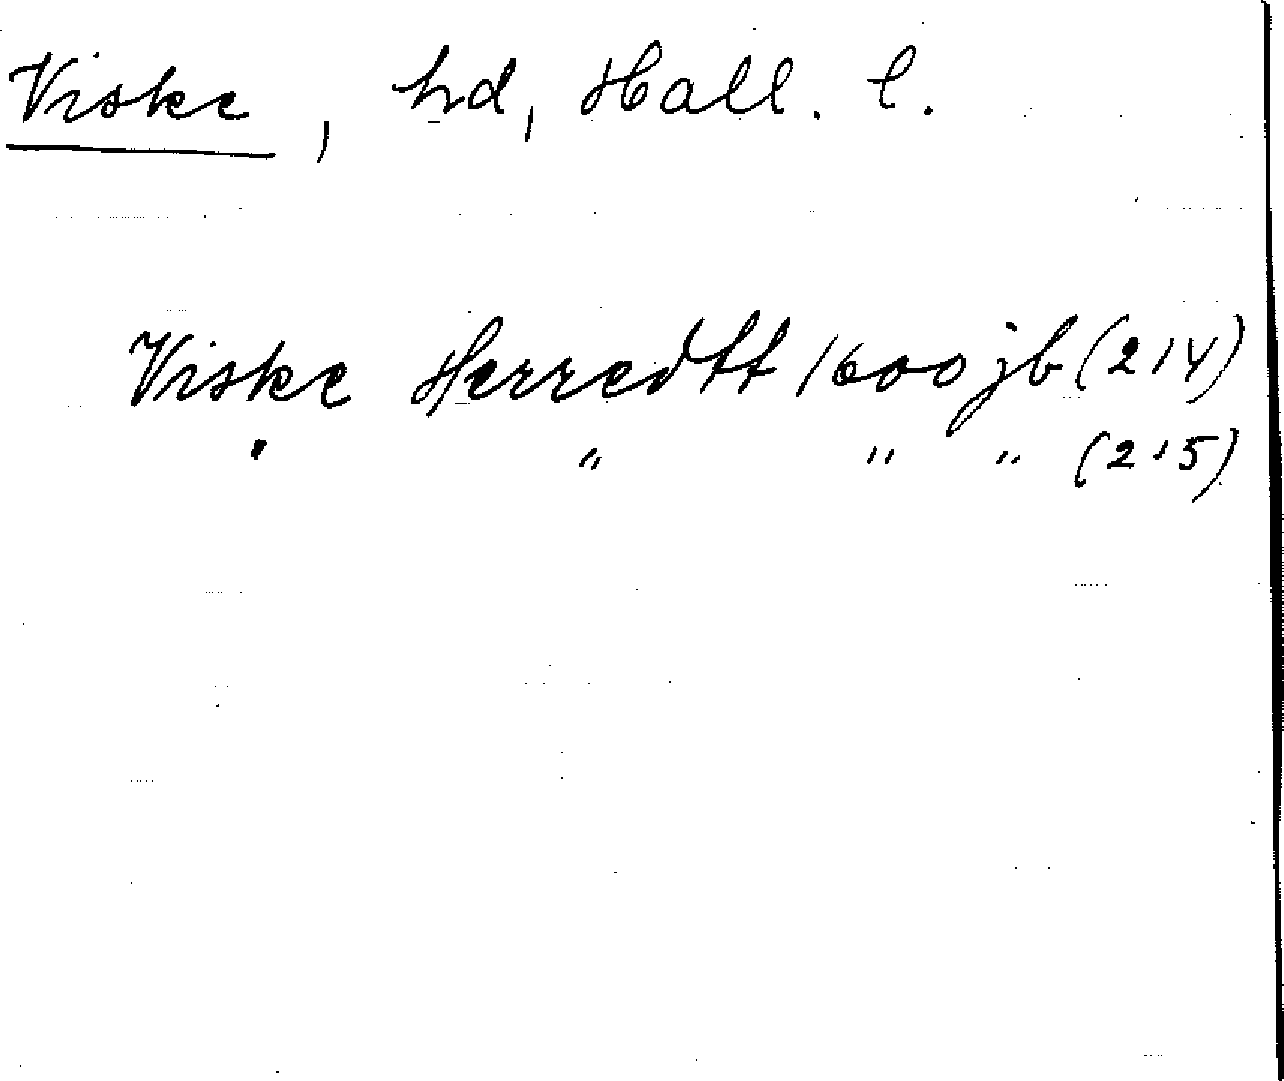 Viske, hd, Hall. l.
Viske Herredtt 1600 jb (214)
" " " " (215)